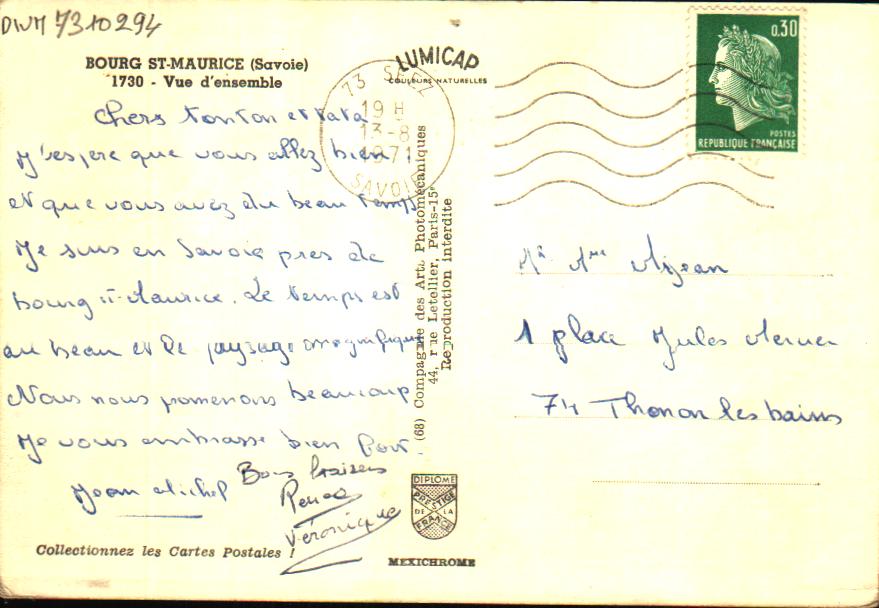 DWM 7310294
BOURG ST-MAURICE (Savoie)
1730 - Vue d'ensemble
LUMICAP
COULEURS NATURELLES
73 SEEZ
19 H
13-8
1971
SAVOIE
0,30
POSTES
REPUBLIQUE FRANÇAISE
Chers Tonton et Tata
J'espere que vous allez bien
et que vous avez du beau temps
Je suis en Savoie pres de
bourg st-Maurice. Le temps est
au beau et le paysage magnifique
Nous nous promenons beaucoup
Je vous embrasse bien fort.
Jean Michel
Bons baisers
Véronique
(68) Compagnie des Arts Photomécaniques
44, rue Letellier, Paris-15e
Reproduction interdite
Mr Mme
1 place Jules
74 Thonon les bains
DIPLOME
PRESTIGE
DE LA
FRANCE
Collectionnez les Cartes Postales !
MEXICHROME